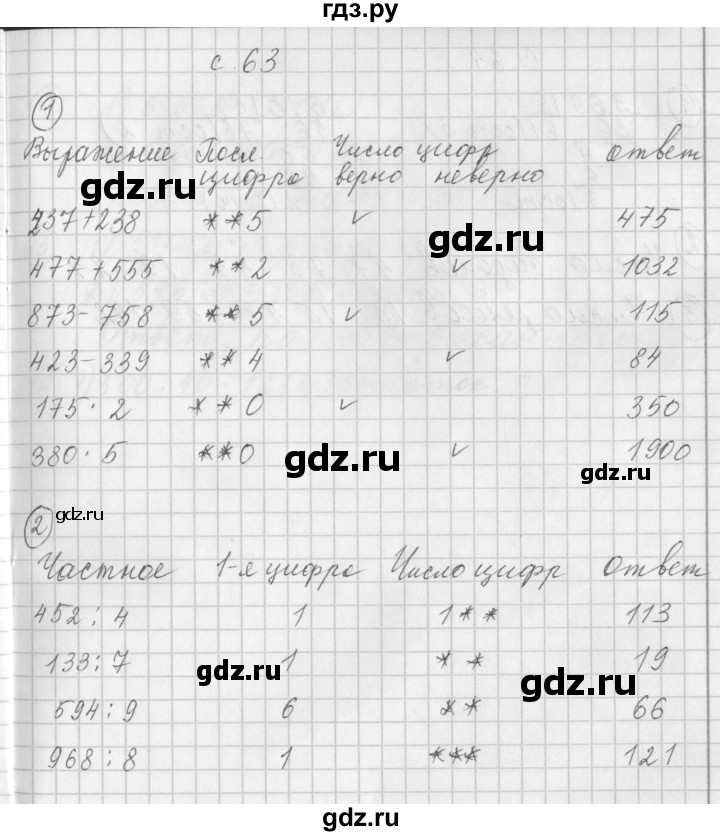 гдз.ру
с. 63
1
Выражение Посл. Число цифр ответ
цифра верно неверно
gdz.ru
237+238 **5 ✓ 475
gdz.ru
477+555 **2 ✓ 1032
873-758 **5 ✓ 115
423-339 **4 ✓ 84
175·2 **0 ✓ 350
380·5 **0 ✓ 1900
gdz.ru
gdz.ru
2 gdz.ru
Частное 1-я цифра Число цифр Ответ
452:4 1 1** 113
133:7 1 ** 19
gdz.ru
gdz.ru
594:9 6 ** 66
968:8 1 *** 121
gdz.ru
gdz.ru